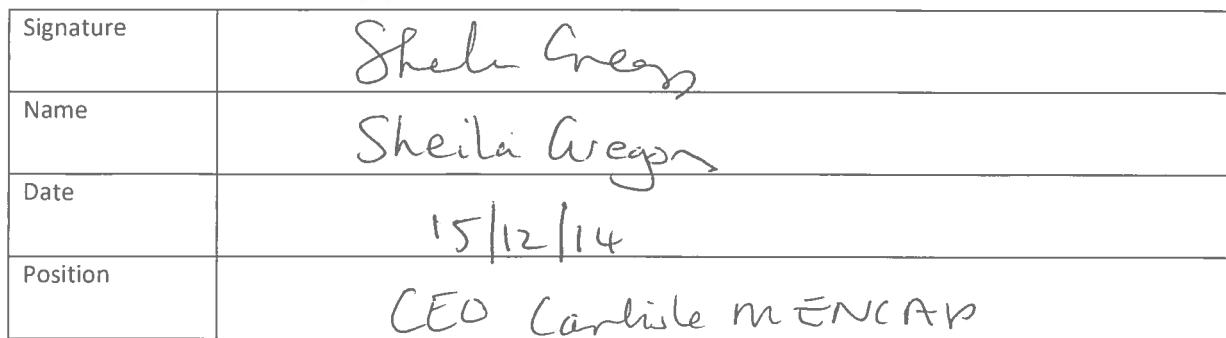 Signature Sheila Gregory
Name Sheila Gregory
Date 15/12/14
Position CEO Carlisle MENCAP